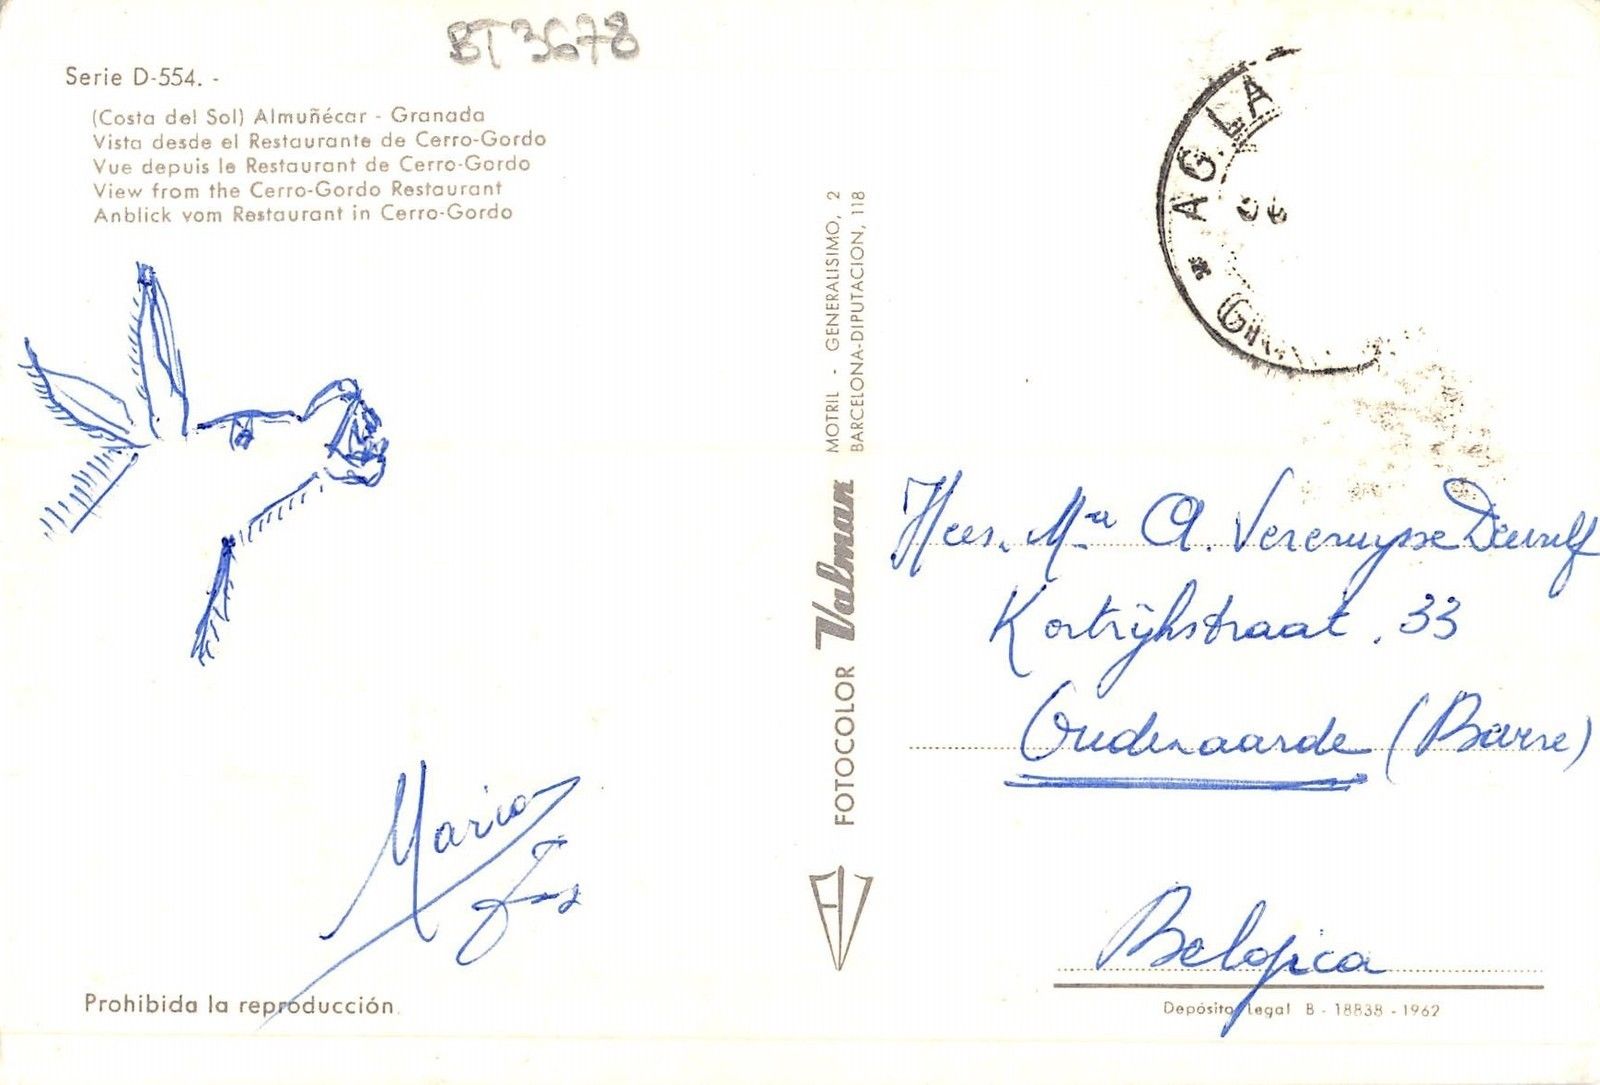 BT3678
Serie D-554. -
(Costa del Sol) Almuñécar - Granada
Vista desde el Restaurante de Cerro-Gordo
Vue depuis le Restaurant de Cerro-Gordo
View from the Cerro-Gordo Restaurant
Anblick vom Restaurant in Cerro-Gordo
Maria
Prohibida la reproducción
FOTOCOLOR Valman
MOTRIL - GENERALISIMO, 2
BARCELONA-DIPUTACION, 118
A.G.LA
Hees. Mª A. Vercruysse Dewulf
Kortrijkstraat. 33
Oudenaarde (Bevere)
Belgica
Depósito Legal B - 18838 - 1962